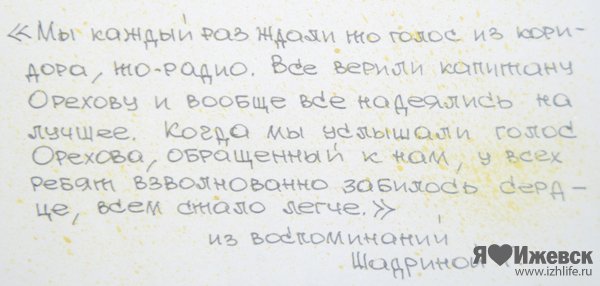 «Мы каждый раз ждали то голос из кори-
дора, то-радио. Все верили капитану
Орехову и вообще все надеялись на
лучшее. Когда мы услышали голос
Орехова, обращенный к нам, у всех
ребят взволнованно забилось серд-
це, всем стало легче.»
из воспоминаний
Шадриной
Я❤Ижевск
www.izhlife.ru